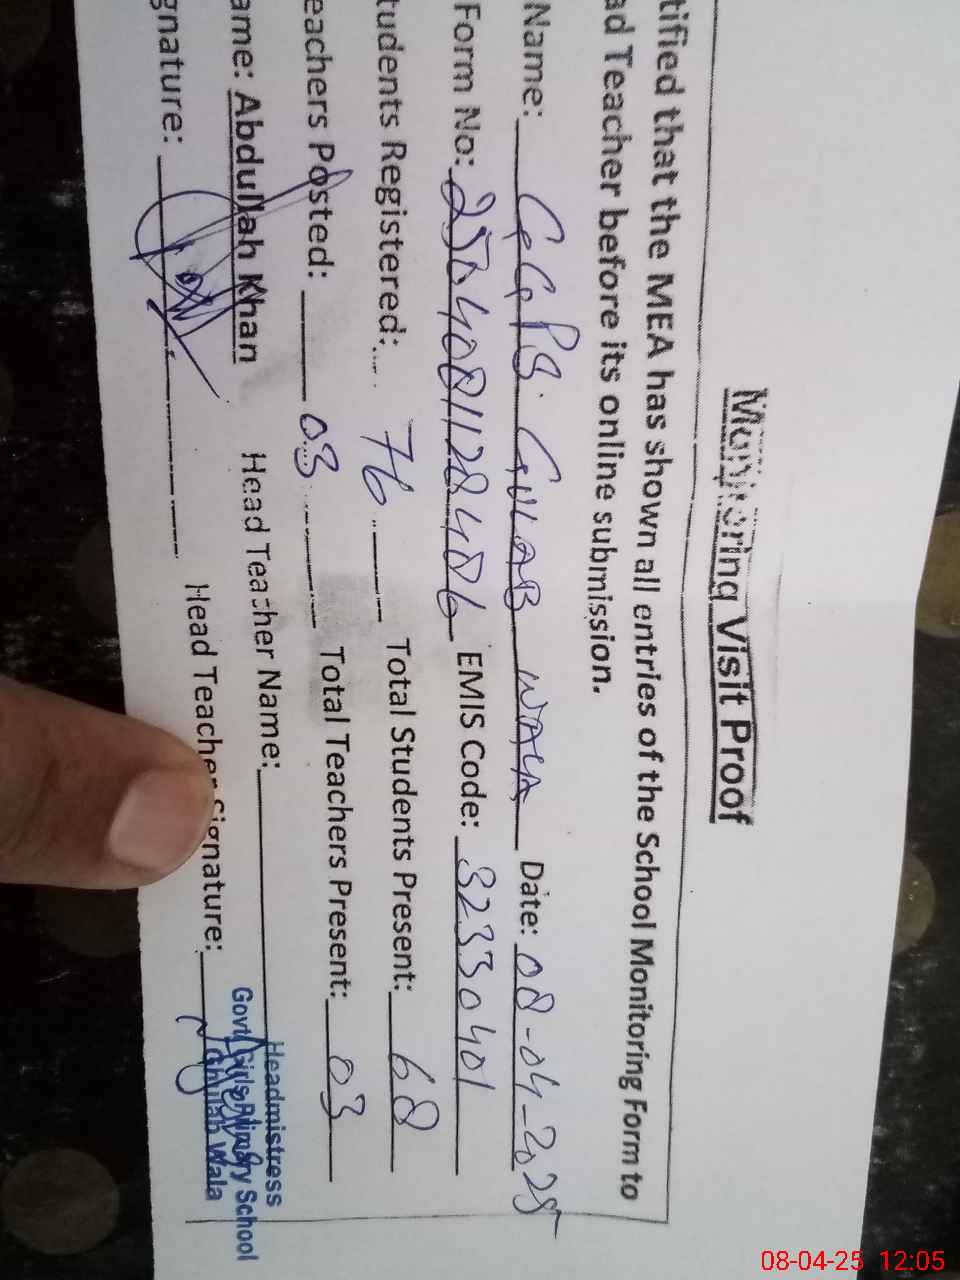 Monitoring Visit Proof
tified that the MEA has shown all entries of the School Monitoring Form to
ad Teacher before its online submission.
Name: GGPS. GULAB WALA Date: 08-04-2025
Form No: EMIS Code: 32330401
tudents Registered: 76 Total Students Present: 68
eachers Posted: 03 Total Teachers Present: 03
ame: Abdullah Khan Head Teacher Name:
gnature: Head Teacher Signature:
Headmistress
Govt Girls Primary School
Ghulab Wala
08-04-25 12:05